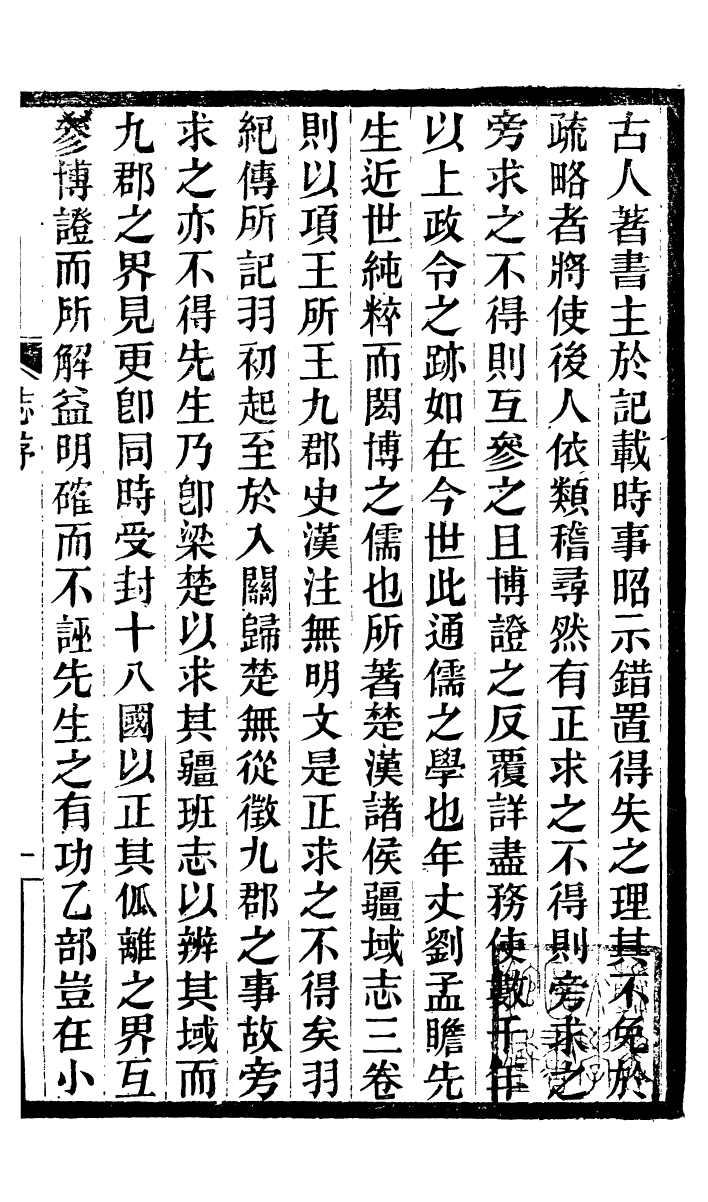 古人著書主於記載時事昭示錯置得失之理其不免於
疏略者將使後人依類稽尋然有正求之不得則旁求之
旁求之不得則互參之且博證之反覆詳盡務使數千年
以上政令之跡如在今世此通儒之學也年丈劉孟瞻先
生近世純粹而閎博之儒也所著楚漢諸侯疆域志三卷
則以項王所王九郡史漢注無明文是正求之不得矣羽
紀傳所記羽初起至於入關歸楚無從徵九郡之事故旁
求之亦不得先生乃卽梁楚以求其疆班志以辨其域而
九郡之界見更卽同時受封十八國以正其㐌離之界互
參博證而所解益明確而不誣先生之有功乙部豈在小
志序
一